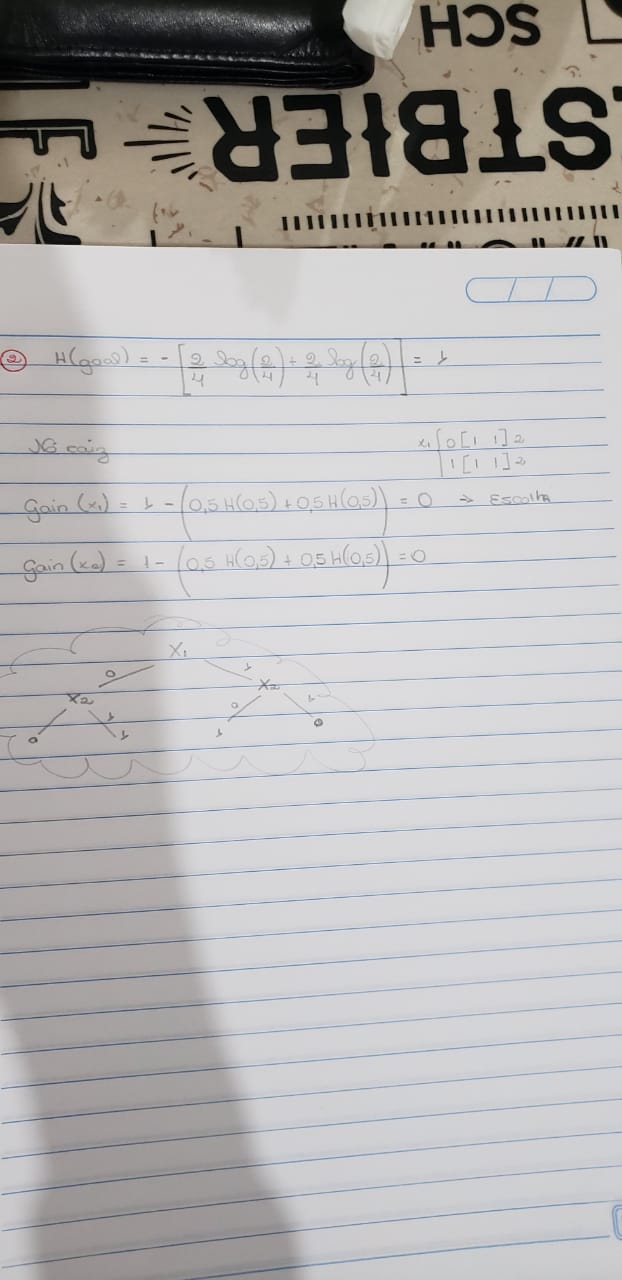 SCH
STBIER
② H(goal) = - [2/4 log(2/4) + 2/4 log(2/4)] = 1
Nó raiz
x₁ 0 [1 1] 2
1 [1 1] 2
Gain (x₁) = 1 - (0,5 H(0,5) + 0,5 H(0,5)) = 0 → Escolha
Gain (x₂) = 1 - (0,5 H(0,5) + 0,5 H(0,5)) = 0
X₁
0 1
X₂ X₂
1 0 1
0 1 1 0